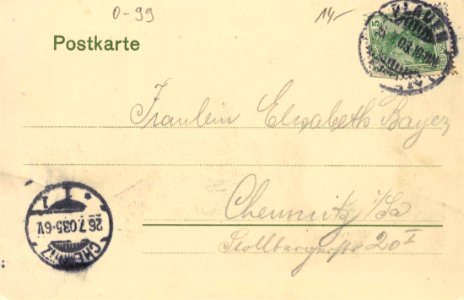 0-99
14.-
Postkarte
PLAUEN
Fräulein Elisabeth Bayer,
Chemnitz i/Sa
Stollbergerstr. 20 I
CHEMNITZ
26.7.03.5-6V.
1